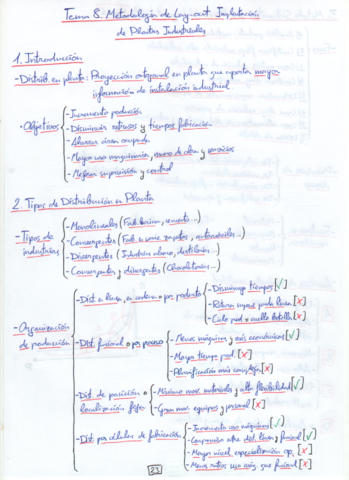 Tema 8. Metodología de Lay-out. Implantación
de Plantas Industriales
1. Introducción
- Distrib. en planta: Proyección ortogonal en planta que aporta mayor
información de instalación industrial
• Objetivos
- Incremento producción
- Disminuir retrasos y tiempos fabricación
- Ahorrar área ocupada
- Mayor uso maquinaria, mano de obra y servicios
- Mejorar supervisión y control
2. Tipos de Distribución en Planta
- Tipos de
industrias
- Monolineales (Fab. harina, cemento...)
- Convergentes (Fab. zapatos, automóviles...)
- Divergentes (Industria
- Convergentes y divergentes (Chocolateras...)
- Organización
de producción
- Dist. en línea, en cadena o por producto
- Disminuye tiempos [✓]
- Retraso supone parar línea [x]
- Ciclo prod. = cuello botella [x]
- Dist. funcional o por proceso
- Menos máquinas y más económicas [✓]
- Mayor tiempo prod. [x]
- Planificación más compleja [x]
- Dist. de posición o
localización fija
- Mínimo mov. materiales y alta flexibilidad [✓]
- Gran mov. equipos y personal [x]
- Dist. por células de fabricación
- Incremento uso máquinas [✓]
- Compromiso entre dist. línea y funcional [✓]
- Mayor nivel especialización op. [x]
- Menos ratios uso máq. que funcional [x]
23